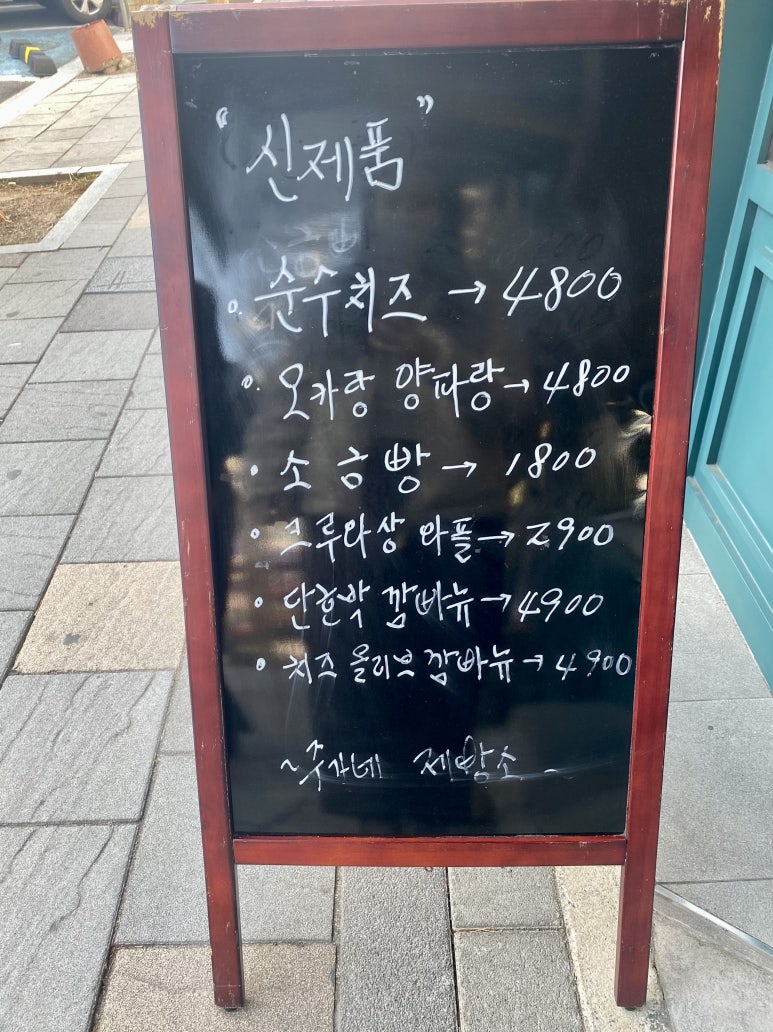 “신제품”
순수치즈 → 4800
오카랑 양파랑 → 4800
소금빵 → 1800
크루와상 와플 → 2900
단호박 깜빠뉴 → 4900
치즈 올리브 깜빠뉴 → 4900
~주가네 제빵소